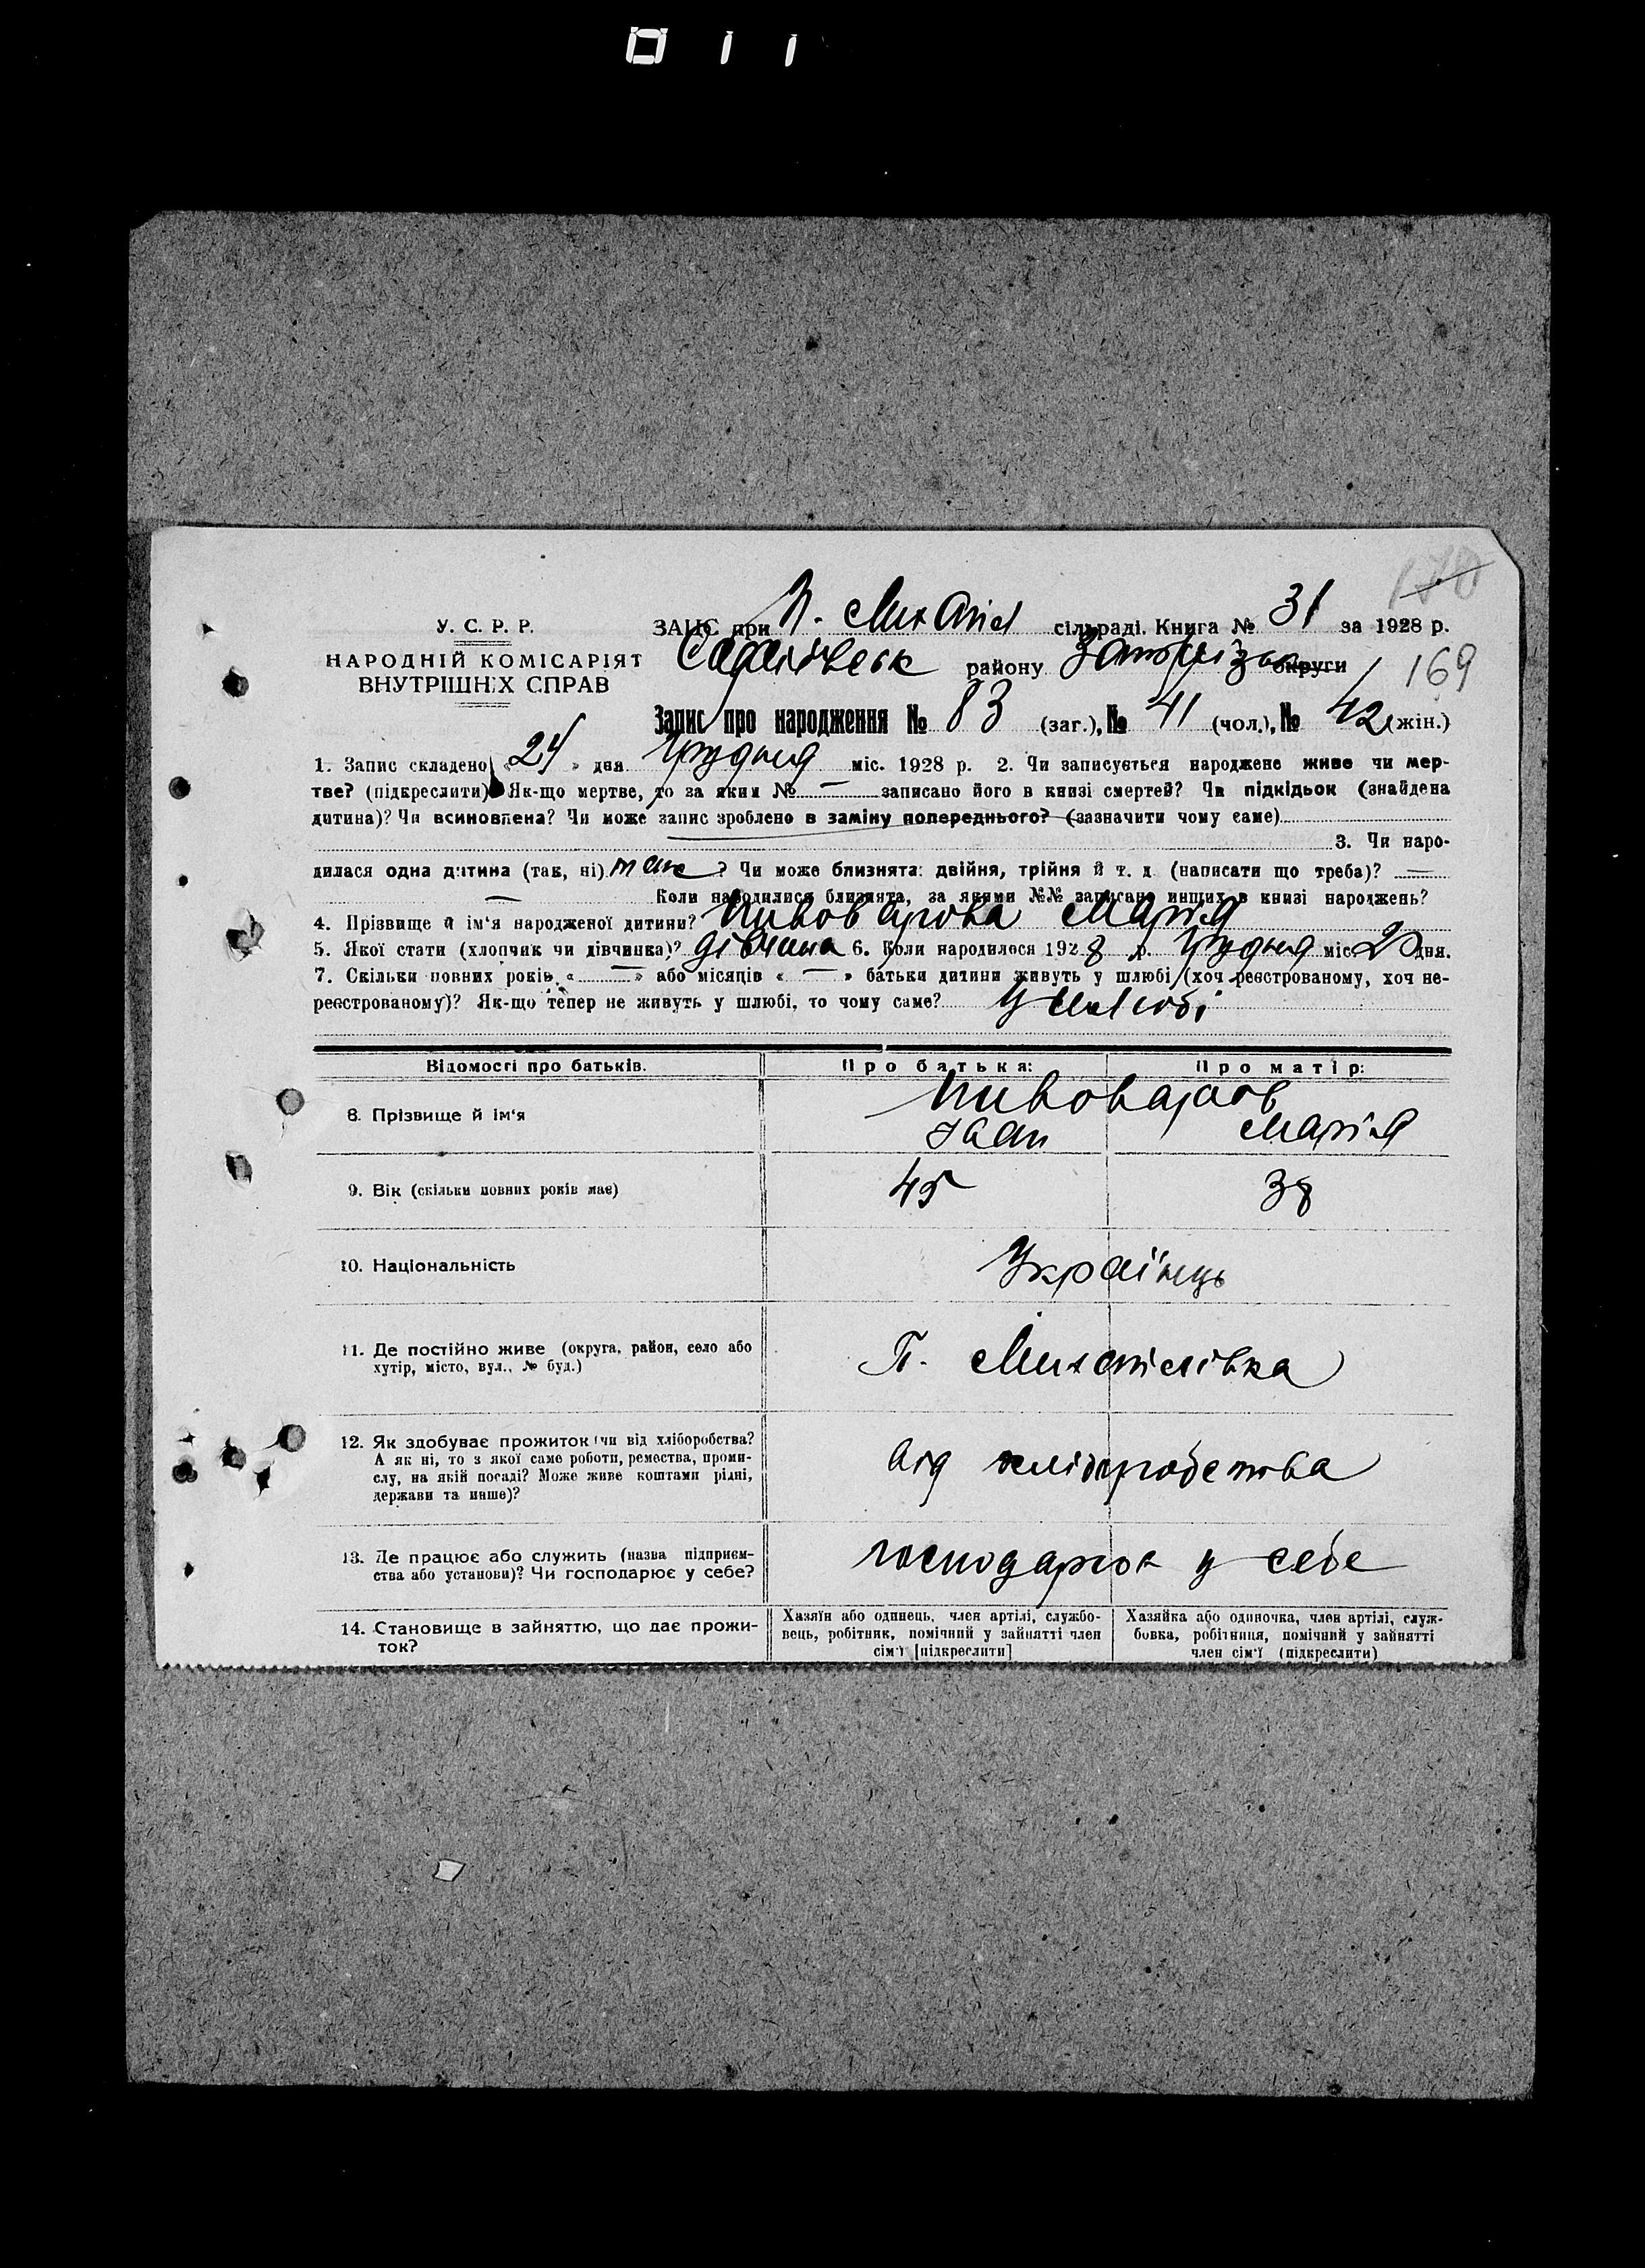 011
170
У. С. Р. Р.
НАРОДНІЙ КОМІСАРІЯТ
ВНУТРІШНІХ СПРАВ
ЗАЦС при П. Михайл сільраді. Книга № 31 за 1928 р.
району округи 169
Запис про народження № 83 (заг.), № 41 (чол.), № 42 (жін.)
1. Запис складено « 24 » дня грудня міс. 1928 р. 2. Чи записується народжене живе чи мер-
тве? (підкреслити) Як-що мертве, то за яким № — записано його в книзі смертей? Чи підкідьок (знайдена
дитина)? Чи всиновлена? Чи може запис зроблено в заміну попереднього? (зазначити чому саме)
3. Чи наро-
дилася одна дитина (так, ні) так ? Чи може близнята: двійня, трійня й т. д. (написати що треба)? —
— Коли народилися близнята, за якими №№ записано инших в книзі народжень?
4. Прізвище й ім‘я народженої дитини? Пивоварова Марія
5. Якої стати (хлопчик чи дівчинка)? дівчина 6. Коли народилося 1928 р. грудня міс. 20 дня.
7. Скільки повних років « — » або місяців « — » батьки дитини живуть у шлюбі (хоч реєстрованому, хоч не-
реєстрованому)? Як-що тепер не живуть у шлюбі, то чому саме? У шлюбі
Відомості про батьків. Про батька: Про матір:
8. Прізвище й ім‘я Пивоваров
Іван Марія
9. Вік (скільки повних років має) 45 38
10. Національність Українць
11. Де постійно живе (округа, район, село або
хутір, місто, вул., № буд.) П. Михайлівка
12. Як здобуває прожиток (чи від хліборобства?
А як ні, то з якої саме роботи, ремества, проми-
слу, на якій посаді? Може живе коштами рідні,
держави та инше)? від хліборобства
13. Де працює або служить (назва підприєм-
ства або установи)? Чи господарює у себе? господарює у себе
14. Становище в зайняттю, що дає прожи-
ток?
Хазяїн або одинець, член артілі, службо-
вець, робітник, помічний у зайнятті член
сім‘ї [підкреслити]
Хазяйка або одиночка, член артілі, служ-
бовка, робітниця, помічний у зайнятті
член сім‘ї (підкреслити)